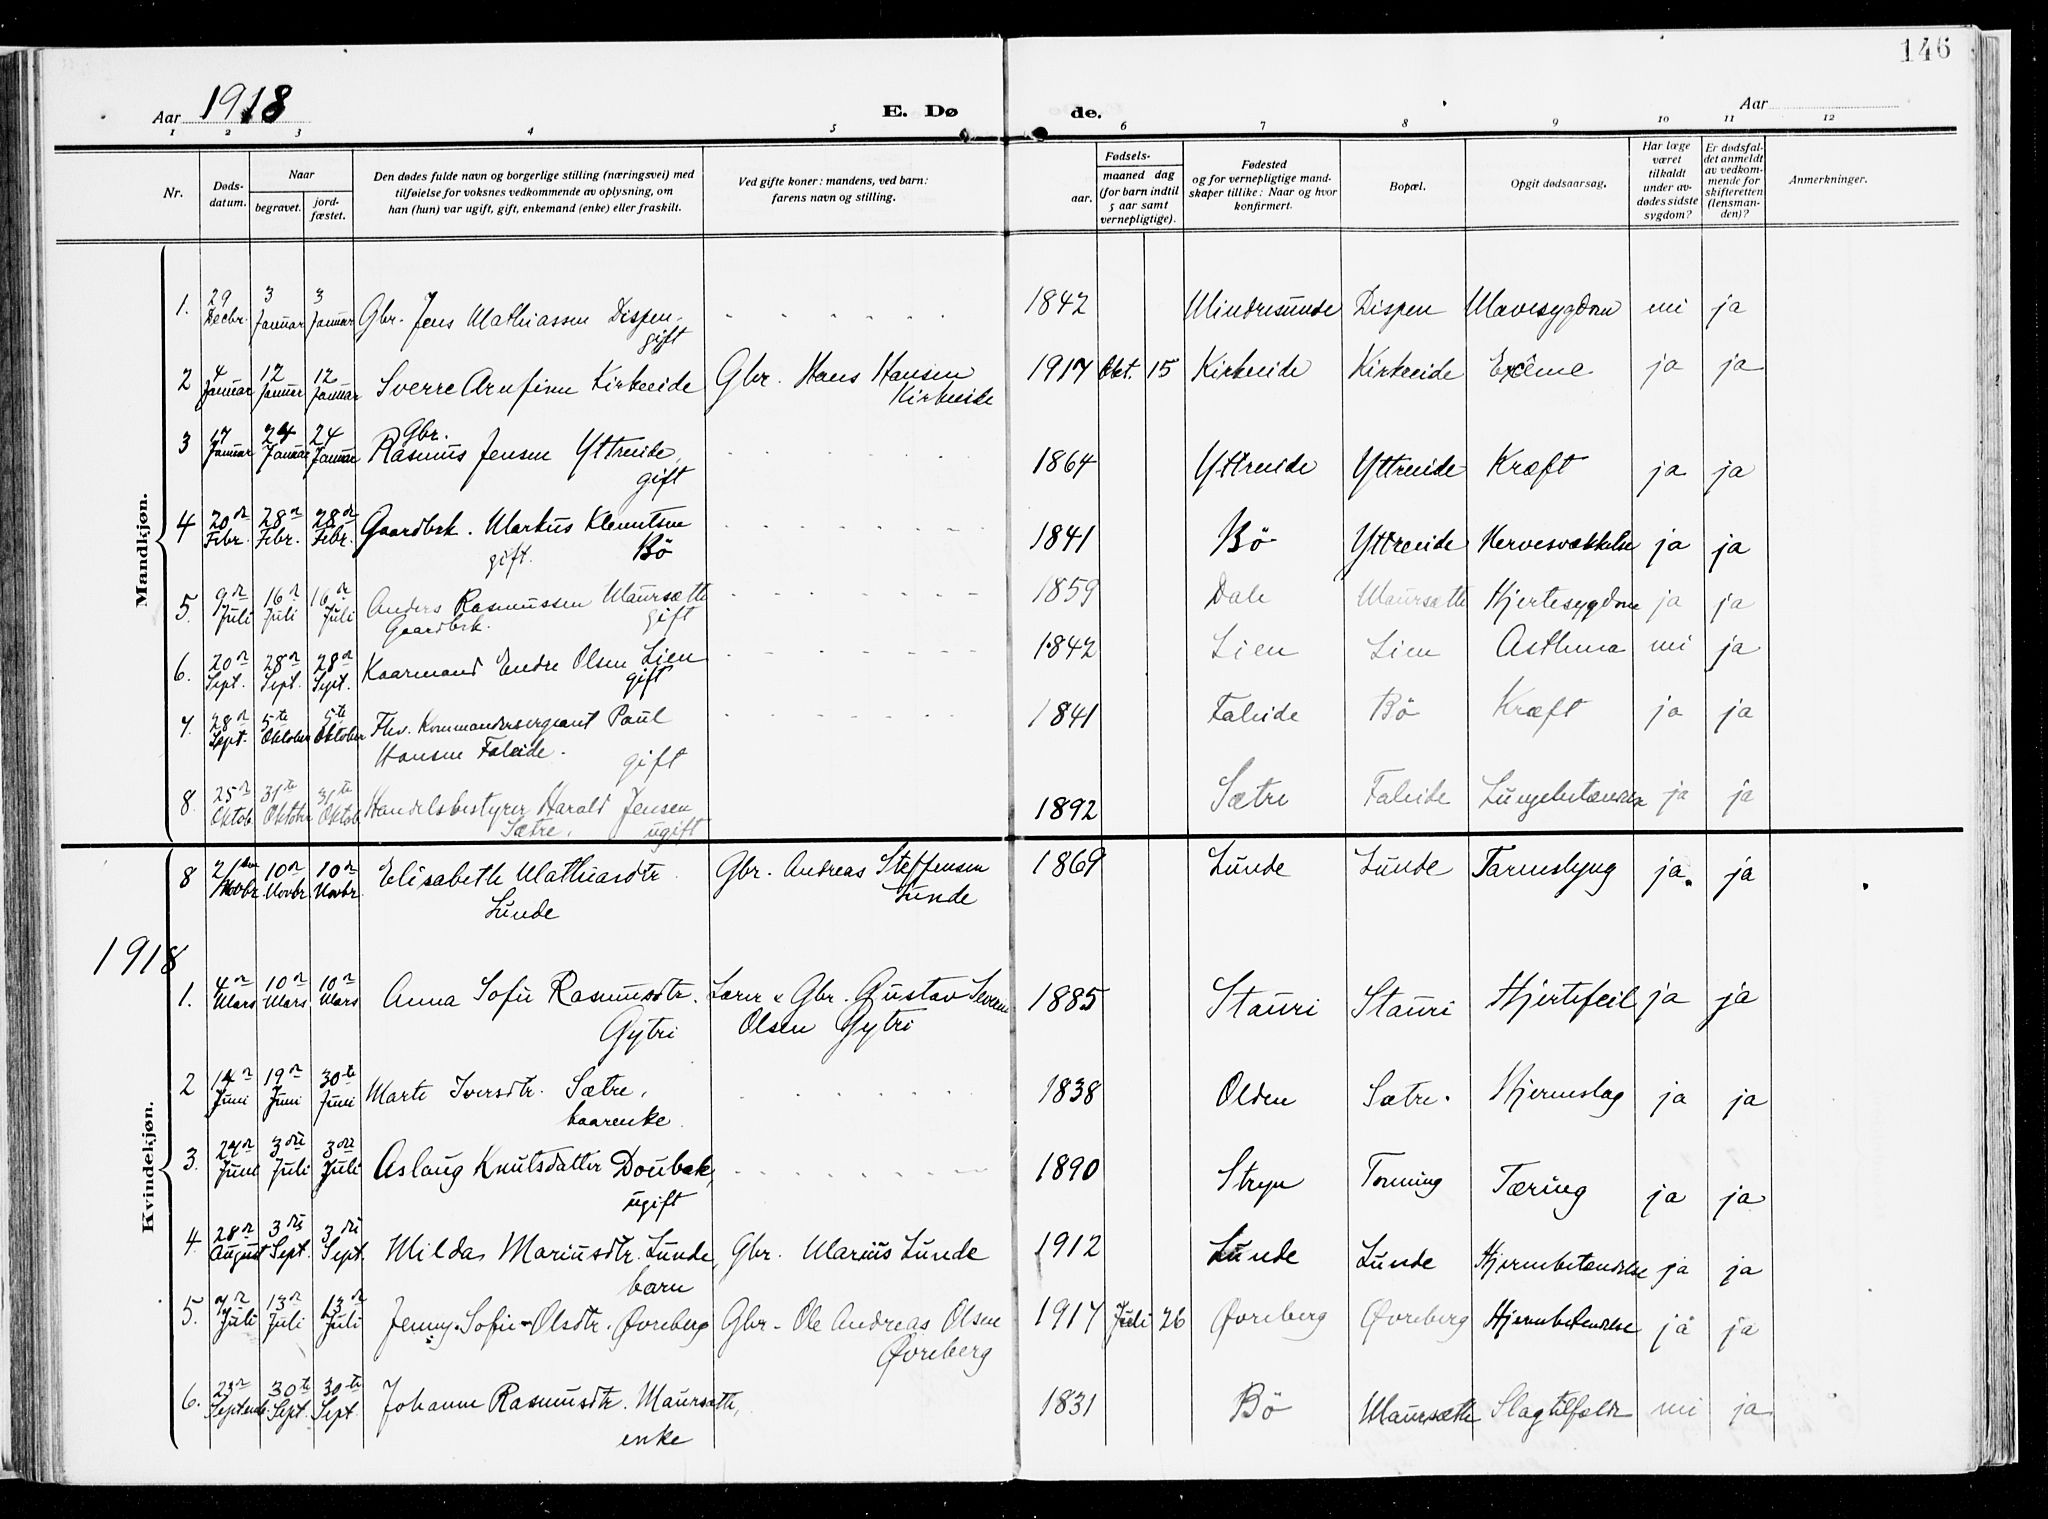 146
Aar 1918
E. Dø de.
Aar
1 2 3 4 5 6 7 8 9 10 11 12
Nr.
Døds-
datum.
Naar
begravet.
jord-
fæstet.
Den dødes fulde navn og borgerlige stilling (næringsvei) med
tilføielse for voksnes vedkommende av oplysning, om
han (hun) var ugift, gift, enkemand (enke) eller fraskilt.
Ved gifte koner: mandens, ved barn:
farens navn og stilling.
Fødsels-
aar.
maaned dag
(for barn indtil
5 aar samt
vernepligtige).
Fødested
og for vernepligtige mand-
skaper tillike: Naar og hvor
konfirmert.
Bopæl.
Opgit dødsaarsag.
Har læge
været
tilkaldt
under av-
dødes sidste
sygdom?
Er dødsfal-
det anmeldt
av vedkom-
mende for
skifteretten
(lensman-
den)?
Anmerkninger.
Mandkjøn.
1. 29 Decbr. 3 Januar 3 Januar Gbr. Jens Mathiassen Dispen, 1842 Mindresunde Dispen Mavesygdom nei ja
gift
2 4 Januar 12 Januar 12 Januar Sverre Arnfinn Kirkeeide Gbr. Hans Hansen 1917 Okt. 15 Kirkeeide Kirkeeide ja ja
Kirkeeide
3 17 Januar 24 Januar 24 Januar Gbr.
Rasmus Jensen Yttreeide, 1864 Yttreeide Yttreeide Kræft ja ja
gift
4 20de Febr. 28de Febr. 28de Febr. Gaardbrk. Markus Klemetsen 1841 Bö Yttreeide Nervesvækkelse ja ja
gift. Bö
5. 9de Juli 16de Juli 16de Juli Anders Rasmussen Maursæth 1859 Dale Maursæth Hjertesygdom ja ja
Gaardbrk. gift
6. 20de Sept. 28de Sept. 28de Sept. Kaarmand Endre Olsen Lien 1842 Lien Lien Asthma nei ja
gift
7. 28de Sept. 5te Oktober 5te Oktober Fhv. Kommandersergeant Paul 1841 Faleide Bö Kræft ja ja
Hansen Faleide. gift
8. 25de Oktob. 31te Oktober 31te Oktob. Handelsbestyrer Harald Jensen 1892 Sætre Faleide Lungebetændelse ja ja
Sætre, ugift
8 2den Novbr. 10de Novbr. 10de Novbr. Elisabeth Mathiasdtr. Gbr. Andreas Steffensen 1869 Lunde Lunde Tarmslyng ja. ja
Lunde Lunde
1918
Kvindekjøn.
1. 4de Mars 10de Mars 10de Mars Anna Sofie Rasmusdtr. Lærer & Gbr. Gustav Severin 1885 Stauri Stauri Hjertefeil ja ja
Gytri Olsen Gytri
2 14de Juni 19de Juni 30te Juni Marte Iversdtr. Sætre, 1838 Olden Sætre. Hjerneslag ja ja
kaarenke.
3. 24de Juni 3die Juli 3die Juli Aslaug Knutsdatter Doubek, 1890 Stryn Tonning Tæring ja ja
ugift
4. 28de August 3die Sept. 3die Sept. Milda Mariusdtr. Lunde, Gbr. Marius Lunde 1912 Lunde Lunde Hjernebetændelse ja ja
barn
5. 7de Juli 13de Juli 13de Juli Jenny Sofie Olsdtr. Øvreberg Gbr. Ole Andreas Olsen 1917 Juli 26 Øvreberg Øvreberg Hjernebetændelse ja ja
Øvreberg
6. 23de Septemb. 30te Sept. 30te Sept. Johanne Rasmusdtr. Maursæth, 1831 Bö Maursæth Slagtilfælde nei ja
enke